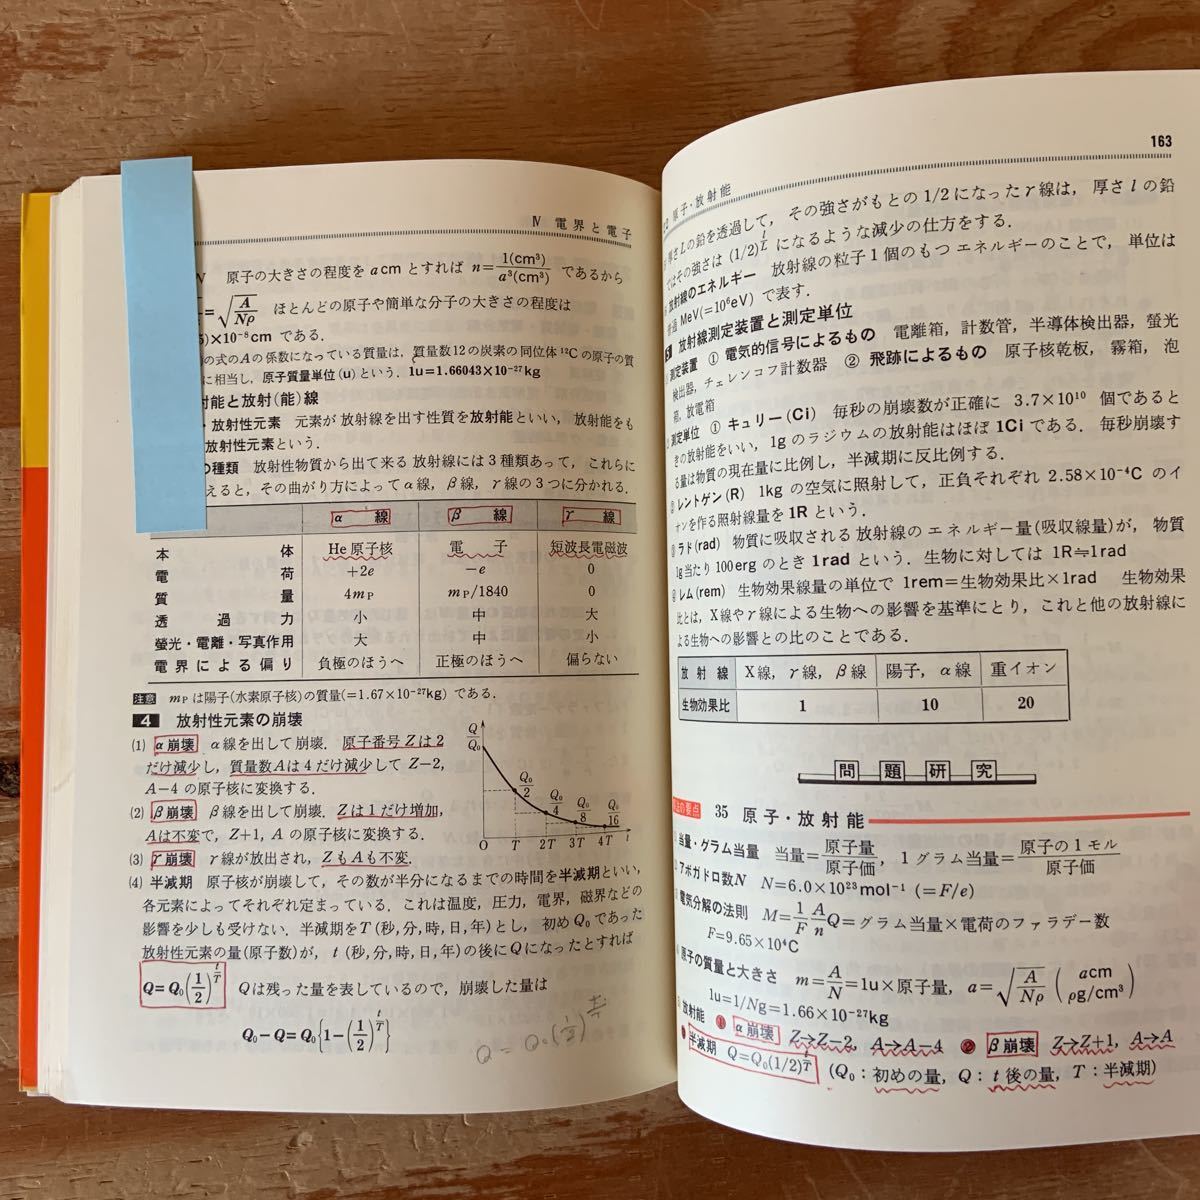 Ⅳ 電界と電子
原子の大きさの程度を a cm とすれば n=1(cm³)/a³(cm³) であるから
=∛A/Nρ ほとんどの原子や簡単な分子の大きさの程度は
)×10⁻⁸cm である.
の式のAの係数になっている質量は, 質量数12の炭素の同位体¹²Cの原子の質
に相当し, 原子質量単位(u)という. 1u=1.66043×10⁻²⁷kg
射能と放射(能)線
放射性元素 元素が放射線を出す性質を放射能といい, 放射能をも
放射性元素という.
の種類 放射性物質から出て来る放射線には3種類あって, これらに
えると, その曲がり方によってα線, β線, γ線の3つに分かれる.
α 線 β 線 γ 線
本体 He原子核 電子 短波長電磁波
電荷 +2e −e 0
質量 4mP mP/1840 0
透過力 小 中 大
螢光・電離・写真作用 大 中 小
電界による偏り 負極のほうへ 正極のほうへ 偏らない
注意 mPは陽子(水素原子核)の質量(=1.67×10⁻²⁷kg)である.
4 放射性元素の崩壊
(1) α崩壊 α線を出して崩壊. 原子番号Zは2
だけ減少し, 質量数Aは4だけ減少して Z−2,
A−4 の原子核に変換する.
(2) β崩壊 β線を出して崩壊. Zは1だけ増加,
Aは不変で, Z+1, A の原子核に変換する.
(3) γ崩壊 γ線が放出され, ZもAも不変.
Q/Q₀
Q₀/2
Q₀/4
Q₀/8
Q₀/16
O T 2T 3T 4T t
(4) 半減期 原子核が崩壊して, その数が半分になるまでの時間を半減期といい,
各元素によってそれぞれ定まっている. これは温度, 圧力, 電界, 磁界などの
影響を少しも受けない. 半減期をT(秒,分,時,日,年)とし, 初めQ₀であった
放射性元素の量(原子数)が, t(秒,分,時,日,年)の後にQになったとすれば
Q=Q₀(1/2)^(t/T) Qは残った量を表しているので, 崩壊した量は
Q₀−Q=Q₀{1−(1/2)^(t/T)}
163
原子・放射能
厚さLの鉛を透過して, その強さがもとの1/2になったγ線は, 厚さlの鉛
ではその強さは (1/2)^(l/L) になるような減少の仕方をする.
放射線のエネルギー 放射線の粒子1個のもつエネルギーのことで, 単位は
普通MeV(=10⁶eV)で表す.
放射線測定装置と測定単位
測定装置 ① 電気的信号によるもの 電離箱, 計数管, 半導体検出器, 螢光
検出器, チェレンコフ計数器 ② 飛跡によるもの 原子核乾板, 霧箱, 泡
箱, 放電箱
測定単位 ① キュリー(Ci) 毎秒の崩壊数が正確に 3.7×10¹⁰ 個であると
きの放射能をいい, 1gのラジウムの放射能はほぼ1Ciである. 毎秒崩壊す
る量は物質の現在量に比例し, 半減期に反比例する.
レントゲン(R) 1kgの空気に照射して, 正負それぞれ 2.58×10⁻⁴C のイ
オンを作る照射線量を1Rという.
ラド(rad) 物質に吸収される放射線のエネルギー量(吸収線量)が, 物質
1g当たり100ergのとき1radという. 生物に対しては 1R≒1rad
レム(rem) 生物効果線量の単位で 1rem=生物効果比×1rad 生物効果
比とは, X線やγ線による生物への影響を基準にとり, これと他の放射線に
よる生物への影響との比のことである.
放射線 X線, γ線, β線 陽子, α線 重イオン
生物効果比 1 10 20
問題研究
の要点 35 原子・放射能
当量・グラム当量 当量=原子量/原子価, 1グラム当量=原子の1モル/原子価
アボガドロ数N N=6.0×10²³mol⁻¹ (=F/e)
電気分解の法則 M=1/F A/n Q=グラム当量×電荷のファラデー数
F=9.65×10⁴C
原子の質量と大きさ m=A/N=1u×原子量, a=∛A/Nρ (acm ρg/cm³)
1u=1/Ng=1.66×10⁻²⁷kg
放射能 ❶ α崩壊 Z→Z−2, A→A−4 ❷ β崩壊 Z→Z+1, A→A
半減期 Q=Q₀(1/2)^(t/T) (Q₀:初めの量, Q:t後の量, T:半減期)